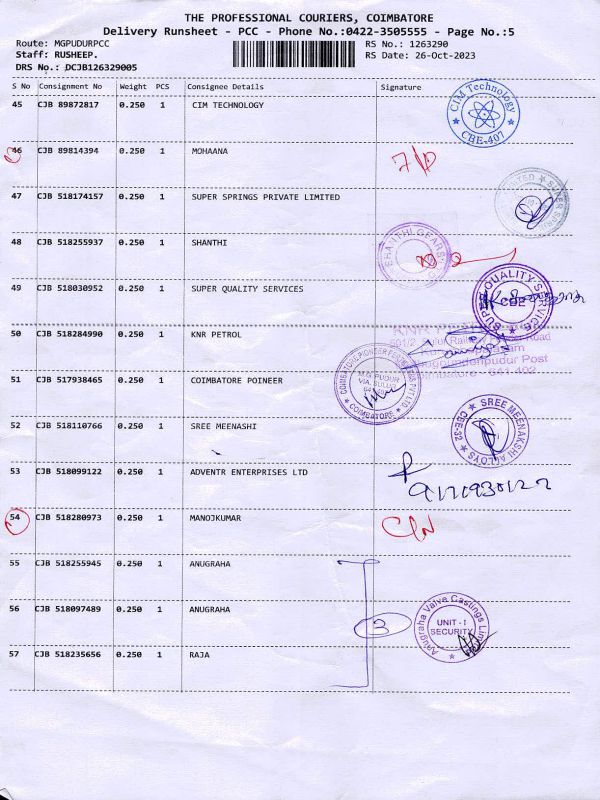 THE PROFESSIONAL COURIERS, COIMBATORE
Delivery Runsheet - PCC - Phone No.:0422-3505555 - Page No.:5
Route: MGPUDURPCC RS No.: 1263290
Staff: RUSHEEP. RS Date: 26-Oct-2023
DRS No.: DCJB126329005
S No Consignment No Weight PCS Consignee Details Signature
45 CJB 89872817 0.250 1 CIM TECHNOLOGY
CIM Technology
CBE-407
46 CJB 89814394 0.250 1 MOHAANA
47 CJB 518174157 0.250 1 SUPER SPRINGS PRIVATE LIMITED
48 CJB 518255937 0.250 1 SHANTHI
SHANTHI GEARS
49 CJB 518030952 0.250 1 SUPER QUALITY SERVICES
SUPER QUALITY SERVICES
CBE
50 CJB 518284990 0.250 1 KNR PETROL
51 CJB 517938465 0.250 1 COIMBATORE POINEER
M.G. PUDUR
VIA. SULUR
COIMBATORE
52 CJB 518110766 0.250 1 SREE MEENASHI
SREE MEENAKSHI ALLOYS
CBE-32
53 CJB 518099122 0.250 1 ADVENTR ENTERPRISES LTD
54 CJB 518280973 0.250 1 MANOJKUMAR
55 CJB 518255945 0.250 1 ANUGRAHA
56 CJB 518097489 0.250 1 ANUGRAHA
3
Anugraha Valve Castings Limi
UNIT - I
SECURITY
57 CJB 518235656 0.250 1 RAJA